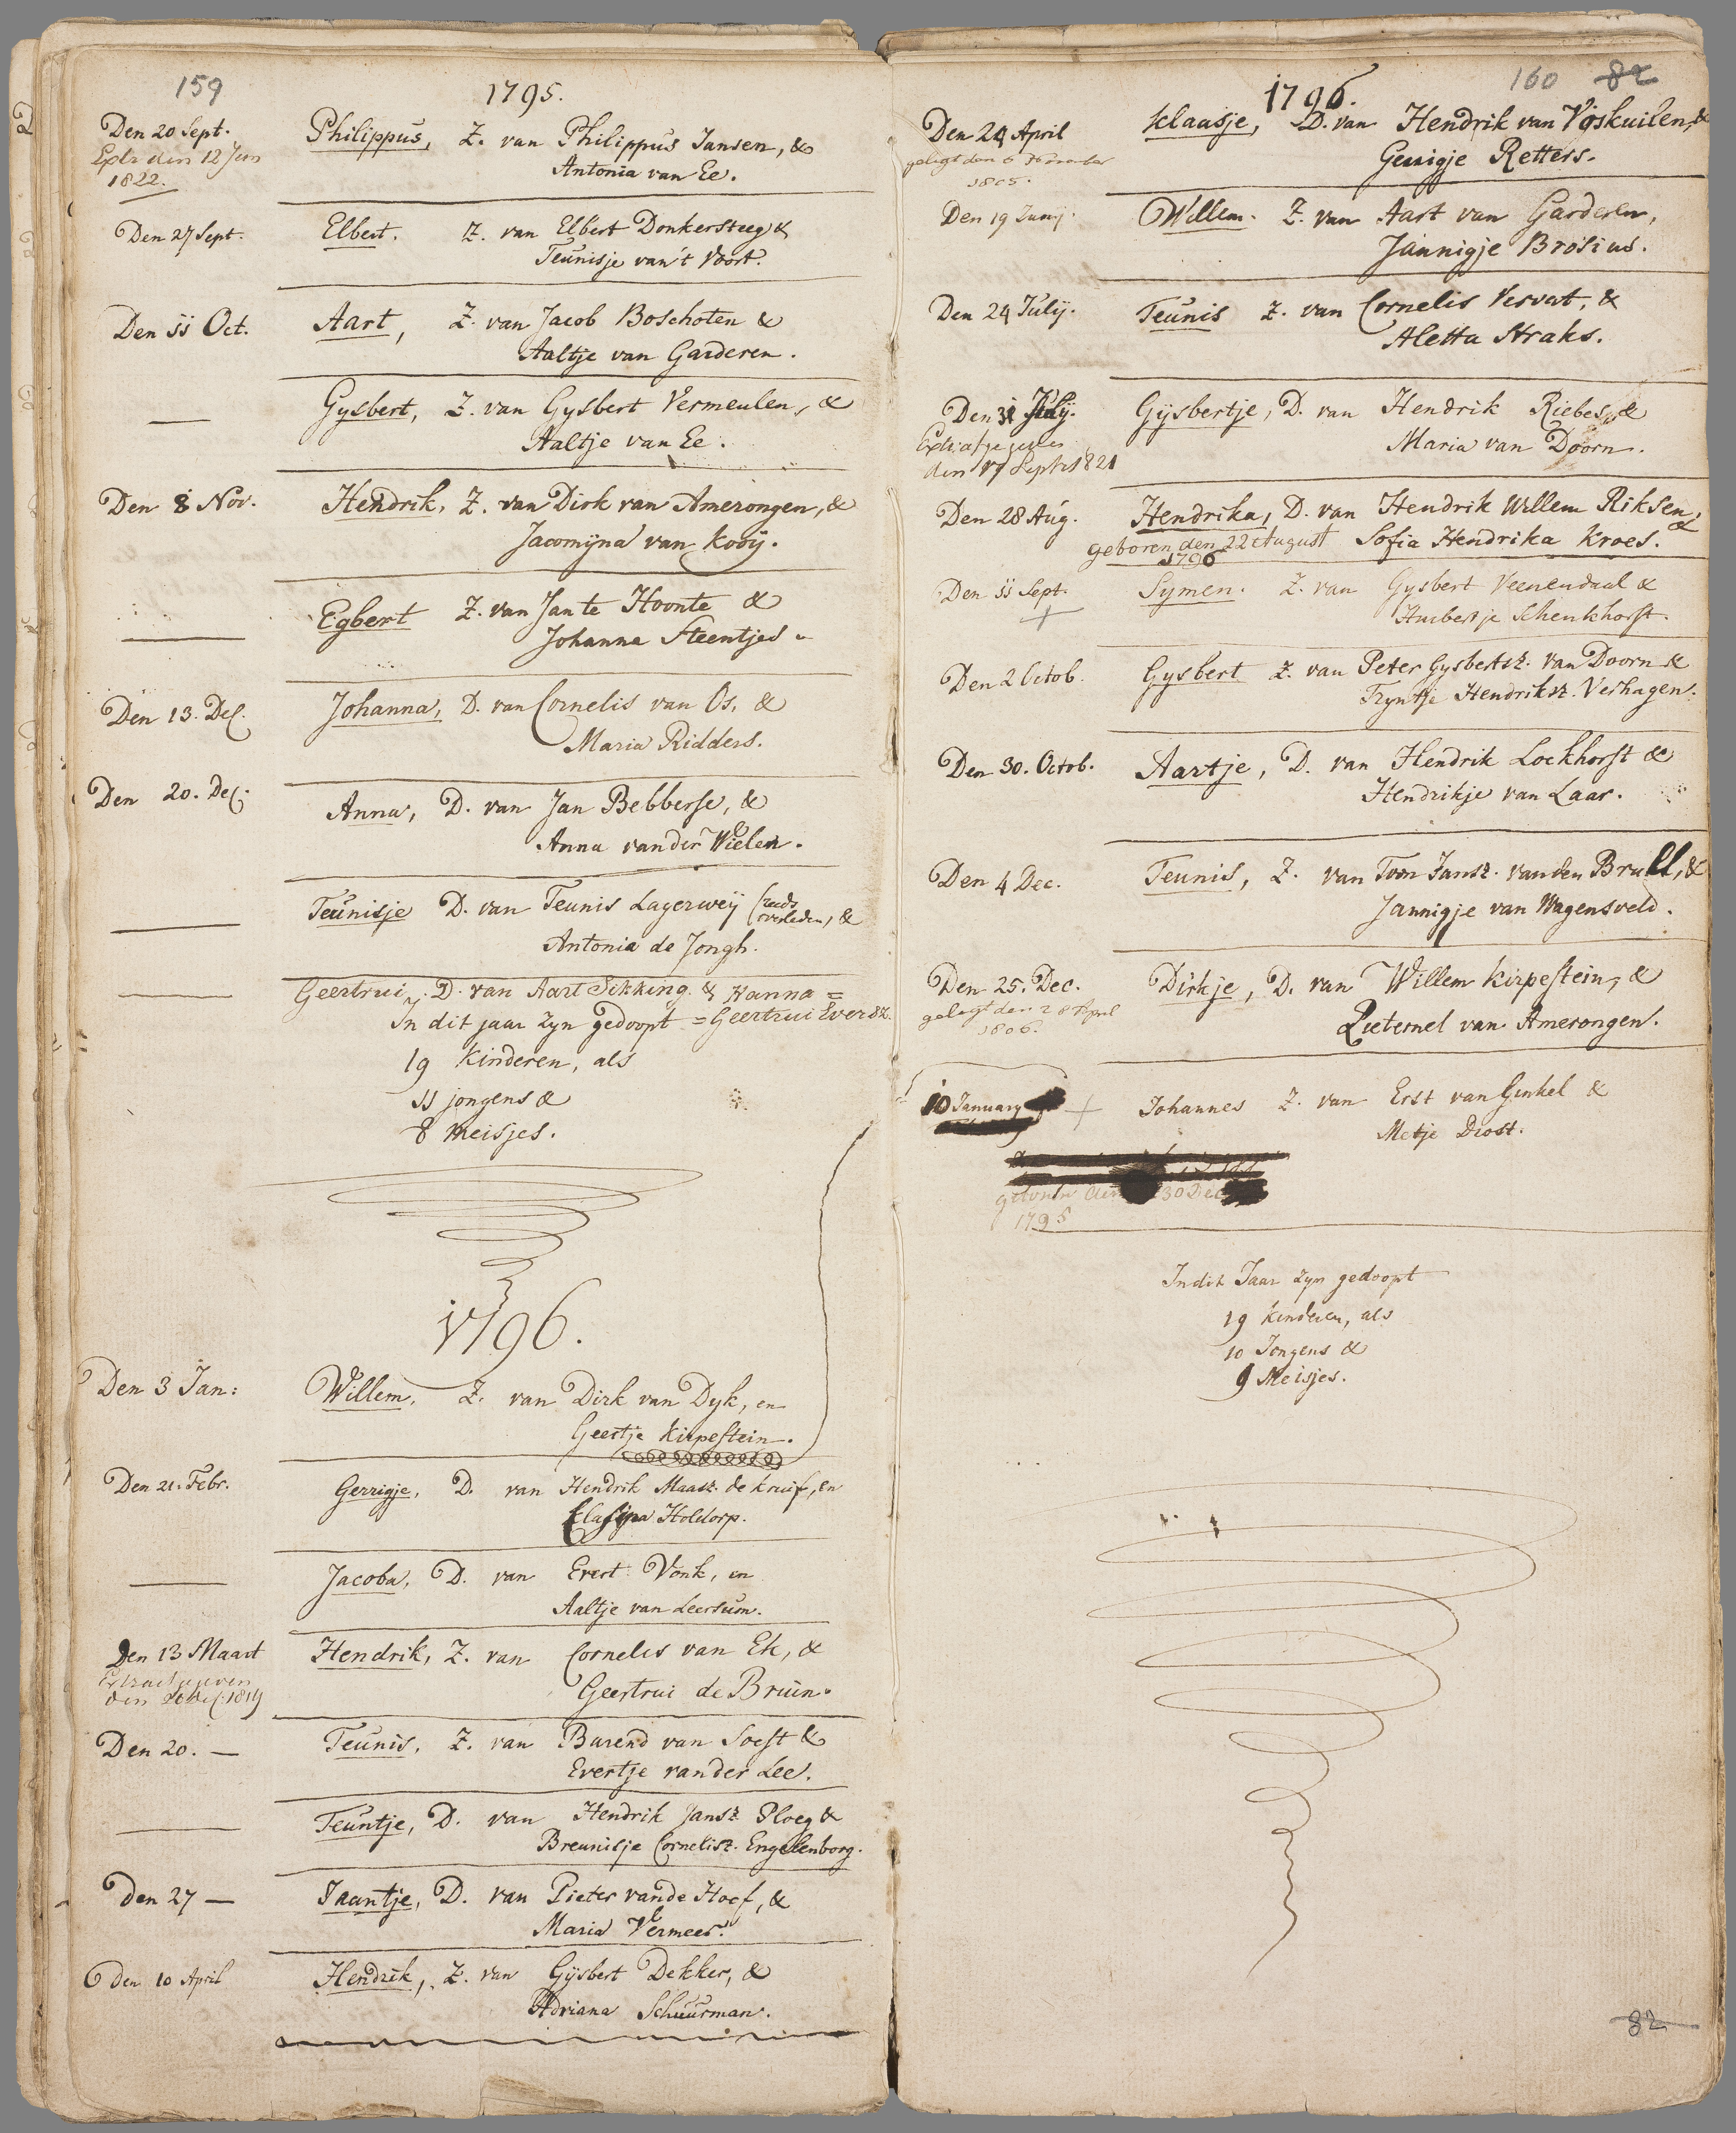 159
1795.
Den 20 Sept. Philippus, Z. van Philippus Jansen, &
Extr den 12 Jun
1822.
Antonia van Ee.
Den 27 Sept. Elbert. Z. van Elbert Donkersteeg &
Teunisje van 't Voort.
Den 11 Oct. Aart, Z. van Jacob Boschoten &
Aaltje van Garderen.
— Gysbert, Z. van Gysbert Vermeulen, &
Aaltje van Ee.
Den 8 Nov. Hendrik, Z. van Dirk van Amerongen, &
Jacomijna van Kooij.
— Egbert Z. van Jan te Hoonte &
Johanna Steentjes.
Den 13. Dec. Johanna, D. van Cornelis van Os, &
Maria Ridders.
Den 20. Dec. Anna, D. van Jan Bebberse, &
Anna vander Wielen.
— Teunisje D. van Teunis Lagerweij (reeds overleden, &
Antonia de Jongh.
— Geertrui, D. van Aart Sikking & Hanna =
In dit jaar zyn gedoopt = Geertrui Eversz.
19 kinderen, als
11 jongens &
8 meisjes.
1796.
Den 3 Jan: Willem, Z. van Dirk van Dyk, en
Geertje Kirpestein.
Den 21. Febr. Gerrigje, D. van Hendrik Maasz. de Kruif, en
Clasyna Holdorp.
— Jacoba, D. van Evert Vonk, en
Aaltje van Leersum.
Den 13 Maart Hendrik, Z. van Cornelis van Ek, &
Extract gegeven
den Dec. 1819
Geertrui de Bruin.
Den 20. — Teunis, Z. van Barend van Soest &
Evertje vander Lee.
— Teuntje, D. van Hendrik Jansz Ploeg &
Breunisje Cornelisz. Engelenborg.
Den 27 — Jaantje, D. van Pieter vande Hoef, &
Maria Vermeer.
Den 10 April Hendrik, Z. van Gijsbert Dekker, &
Adriana Schuurman.
160 82
1796.
Den 24 April Klaasje, D. van Hendrik van Voskuilen, &
gelegt den 6 November
1805.
Gerrigje Retters.
Den 19 Junij. Willem. Z. van Aart van Garderen,
Jannigje Brosius.
Den 24 Julij. Teunis Z. van Cornelis Vervat, &
Aletta Straks.
Den 31 July. Gijsbertje, D. van Hendrik Riebes, &
Extr. afgegeven
den 17 Septr 1821
Maria van Doorn.
Den 28 Aug. Hendrika, D. van Hendrik Willem Riksen, &
geboren den 22 August Sofia Hendrika Kroes.
1796
Den 11 Sept. Symen. Z. van Gysbert Veenendaal &
Huibertje Schenkhorst.
Den 2 Octob. Gysbert Z. van Peter Gysbertsz. van Doorn &
Tryntje Hendriksz. Verhagen.
Den 30. Octob. Aartje, D. van Hendrik Lockhorst &
Hendrikje van Laar.
Den 4 Dec. Teunis, Z. van Toon Jansz. vanden Brull, &
Jannigje van Wagensveld.
Den 25. Dec. Dirkje, D. van Willem Kirpestein, &
gelegt den 28 April
1806.
Pieternel van Amerongen.
10 January Johannes Z. van Erst van Ginkel &
Metje Drost.
geboren den 30 Dec
1795
In dit Jaar zyn gedoopt
19 kinderen, als
10 Jongens &
9 Meisjes.
82